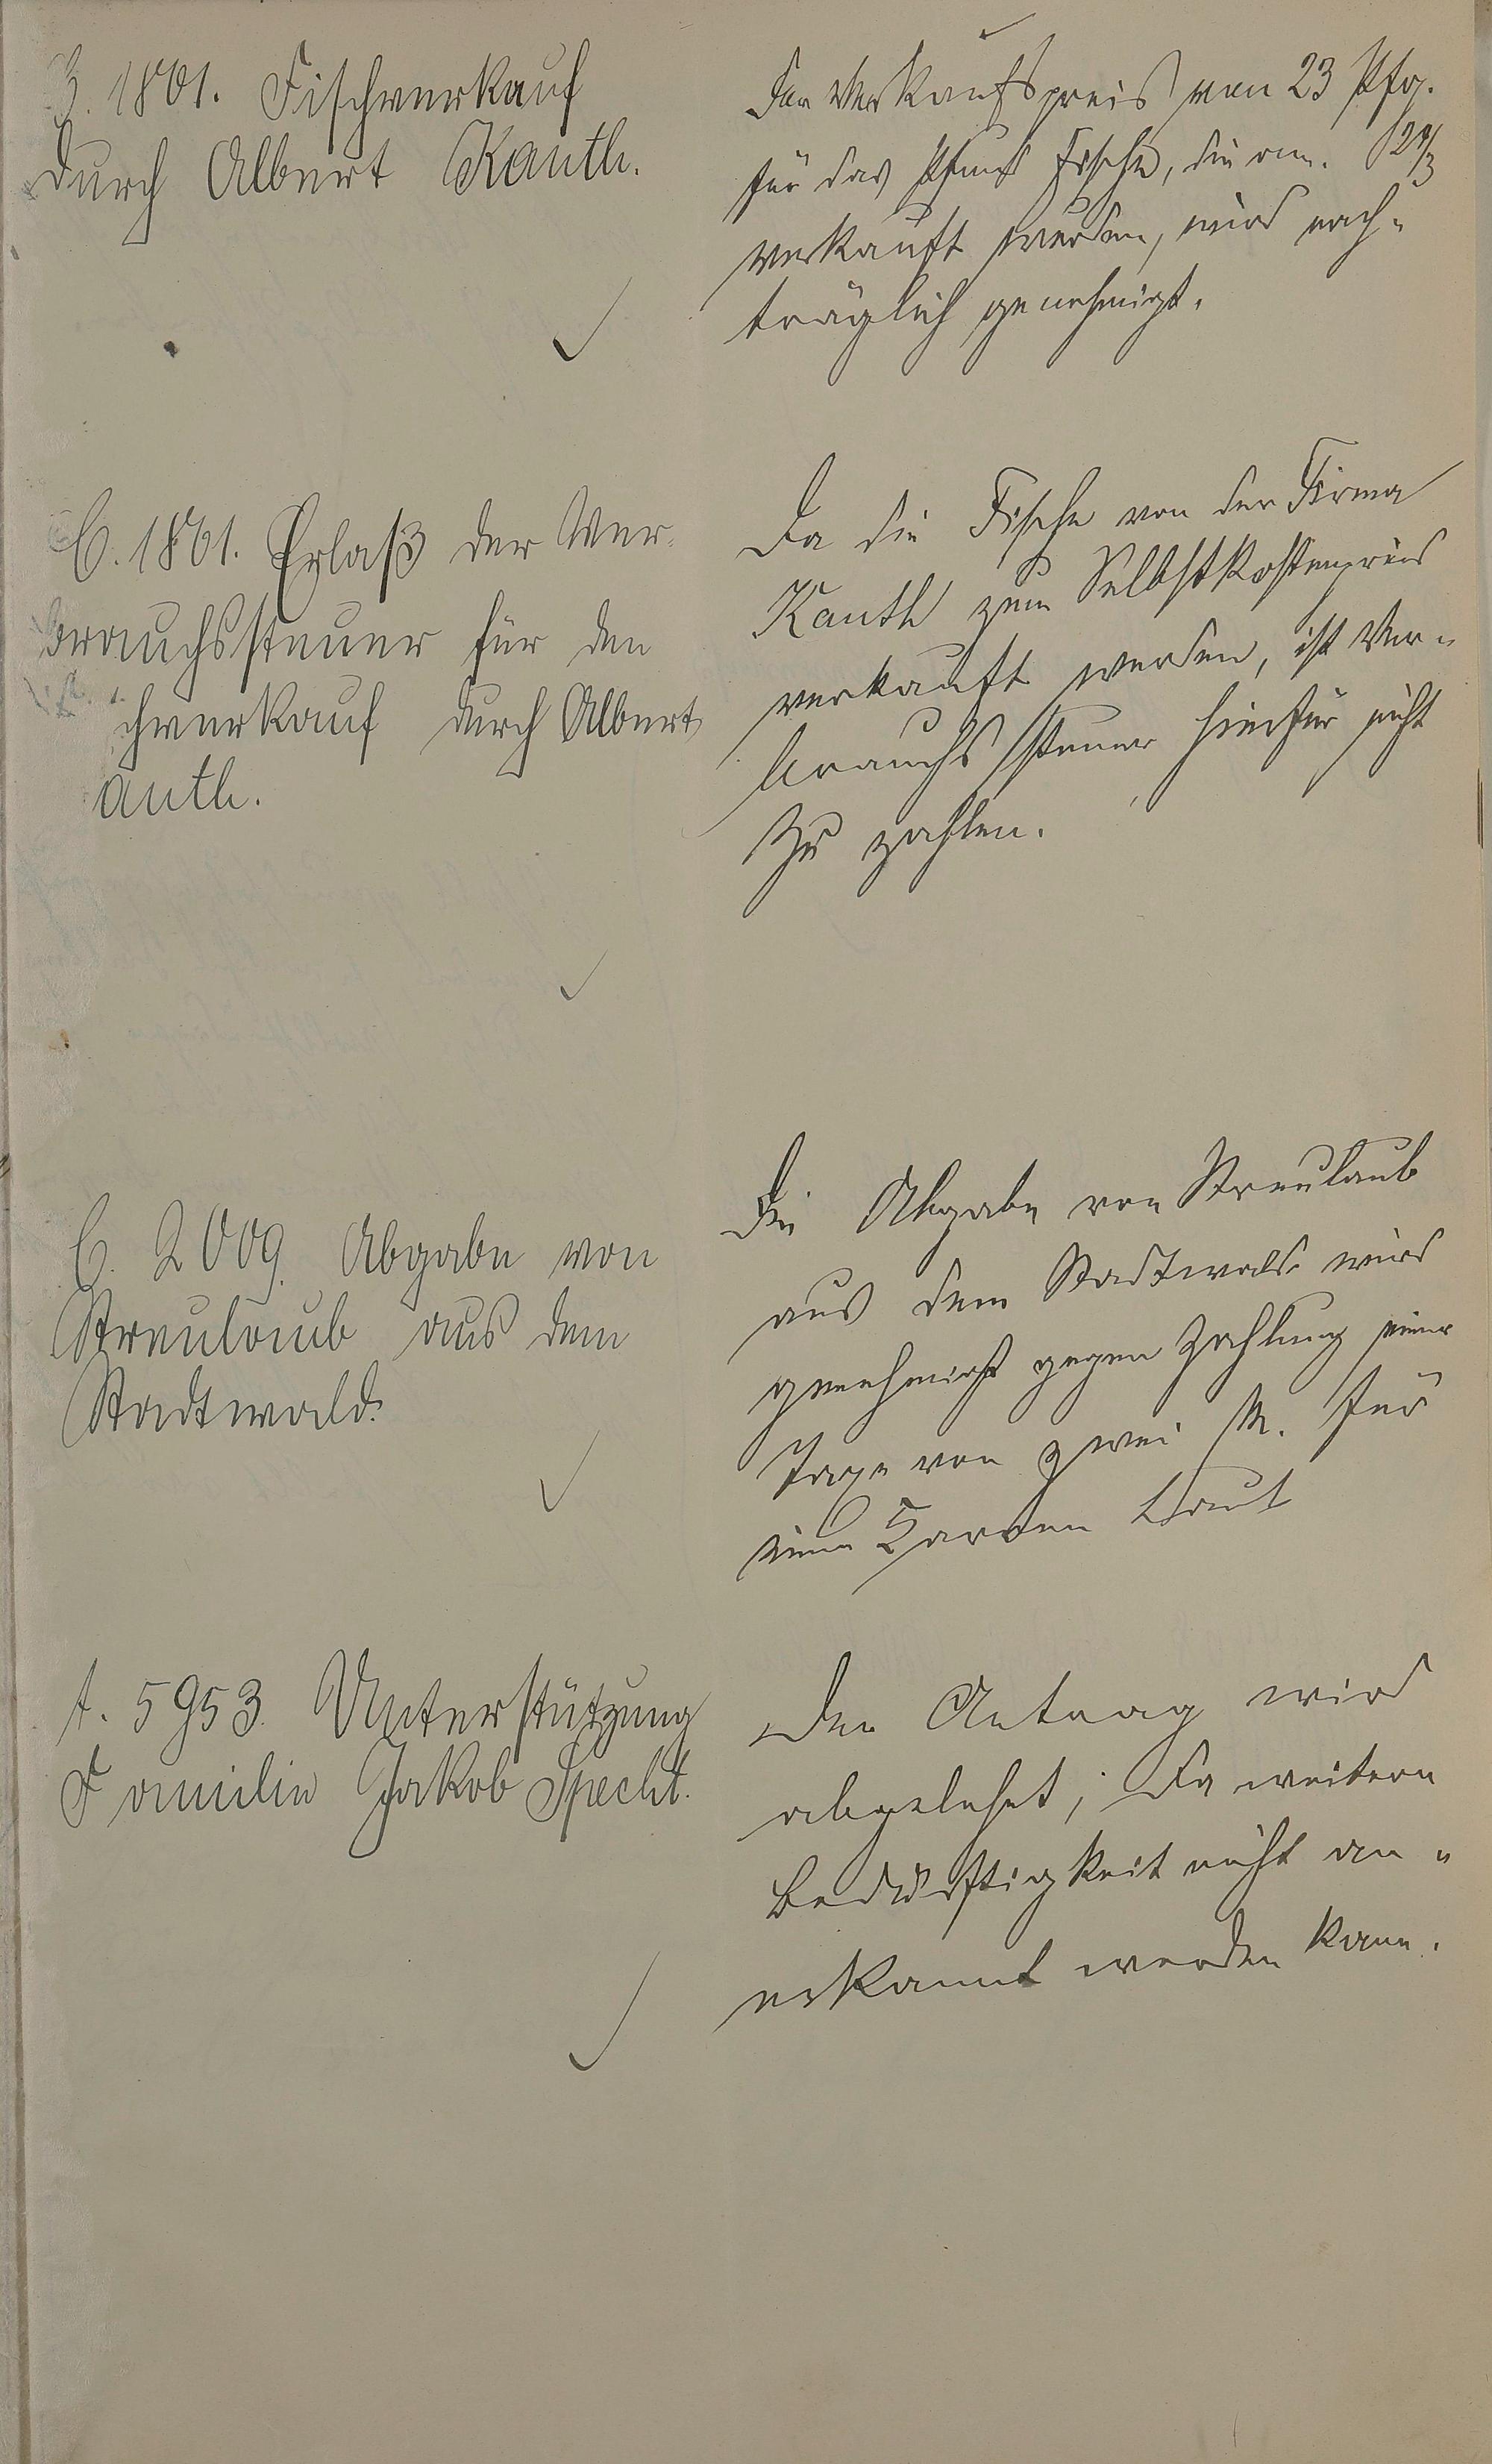 B. 1801. Fischverkauf
durch Albert Kauth.
Der Verkaufspreis von 23 Pfg.
für das Pfund Fische, die am
verkauft wurden, wird nach-
träglich genehmigt.
C. 1801. Erlaß der Ver-
brauchssteuer für den
chverkauf durch Albert
auth.
Da die Fische von der Firma
Kauth zum Selbstkostenpreis
verkauft werden, ist Ver-
brauchssteuer hierfür nicht
zu zahlen.
C. 2009. Abgabe von
Streulaub aus dem
Stadtwald.
Die Abgabe von Streulaub
aus dem Stadtwald wird
genehmigt gegen Zahlung einer
Taxe von zwei M. für
einen Karren Laub
A. 5953. Unterstützung
Familie Jakob Specht.
Der Antrag wird
abgelehnt, da weitere
Bedürftigkeit nicht an-
erkannt werden kann.